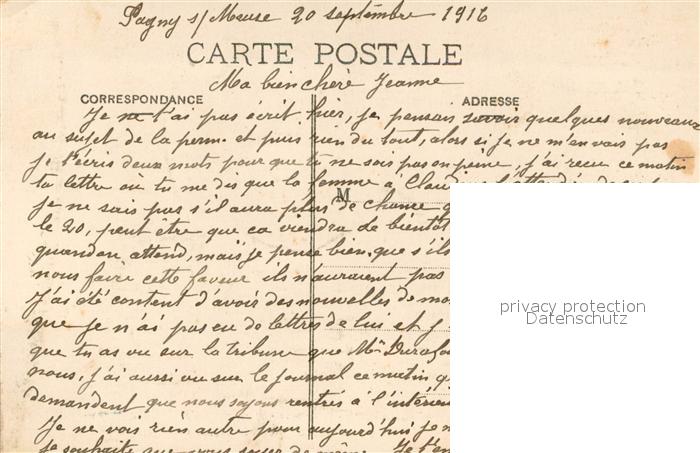 Pagny s/ Meuse 20 septembre 1916
CARTE POSTALE
Ma bien chère Jeanne
CORRESPONDANCE
ADRESSE
Je ne t'ai pas écrit hier, je pensais savoir quelques nouveaux
au sujet de la perme et puis rien du tout, alors si je ne m'en vais pas
je t'écris deux mots pour que tu ne sois pas en peine, j'ai reçu ce matin
ta lettre ou tu me dis que la femme à
M
je ne sais pas s'il aura plus de chance
le 20, peut être que ca viendra de bientôt
quand on attend, mais je pense bien que s'ils
nous faire cette faveur ils n'auraient pas
J'ai été content d'avoir des nouvelles de mon
que je n'ai pas eu de lettres de lui et j
que tu as vu sur la tribune que Mr
nous, j'ai aussi vu sur le journal ce matin q
demandent que nous soyons rentrés à l'intérieur
Je ne vois rien autre pour aujourd'hui je
je souhaite que Je t'en
privacy protection
Datenschutz